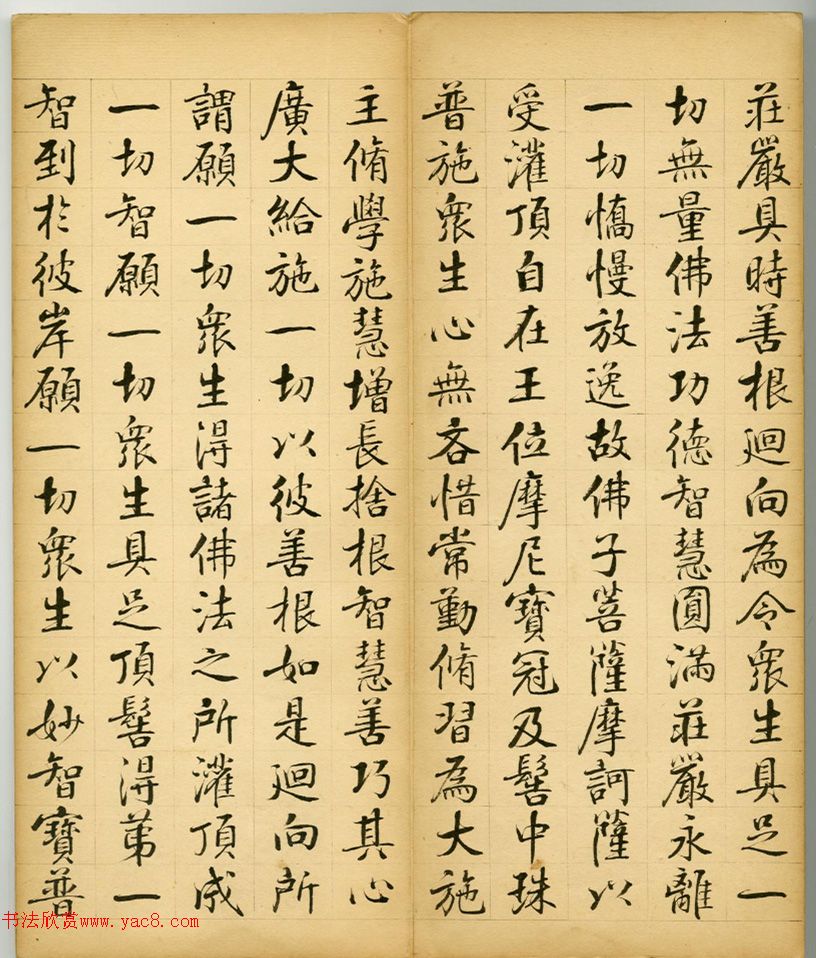 莊嚴具時善根廻向為令眾生具足一
切無量佛法功德智慧圓滿莊嚴永離
一切憍慢放逸故佛子菩薩摩訶薩以
受灌頂自在王位摩尼寶冠及髻中珠
普施眾生心無吝惜常勤脩習為大施
主脩學施慧增長捨根智慧善巧其心
廣大給施一切以彼善根如是廻向所
謂願一切眾生得諸佛法之所灌頂成
一切智願一切眾生具足頂髻得第一
智到於彼岸願一切眾生以妙智寶普
书法欣赏www.yac8.com